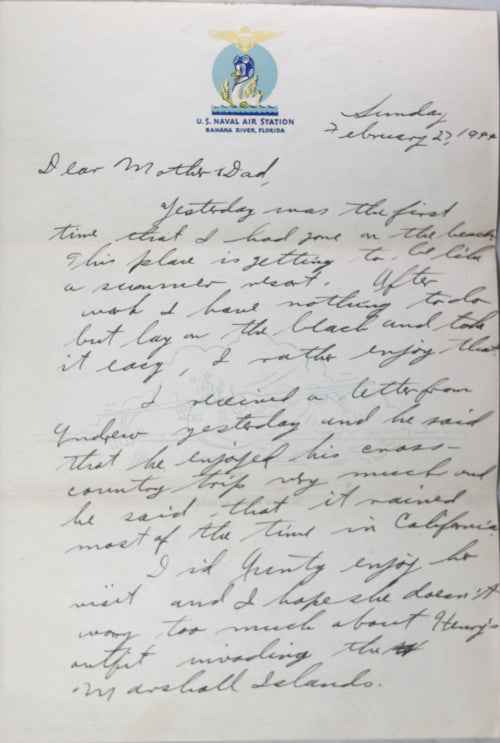 U.S. NAVAL AIR STATION
BANANA RIVER, FLORIDA
Sunday
February 27, 1944
Dear Mother & Dad,
Yesterday was the first
time that I had gone on the beach
This place is getting to be like
a summer resort. After
work I have nothing to do
but lay on the beach and take
it easy, I rather enjoy that
I received a letter from
Andrew yesterday and he said
that he enjoyed his cross-
country trip very much and
he said that it rained
most of the time in California
I id Aunty enjoy her
visit and I hope she doesn't
worry too much about Henry's
outfit invading the
Marshall Islands.